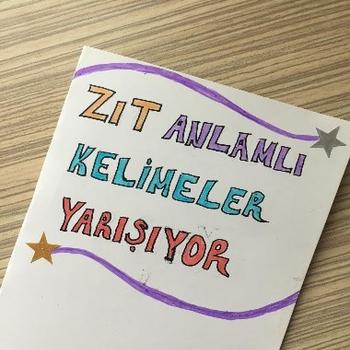 ZIT ANLAMLI
KELİMELER
YARIŞIYOR